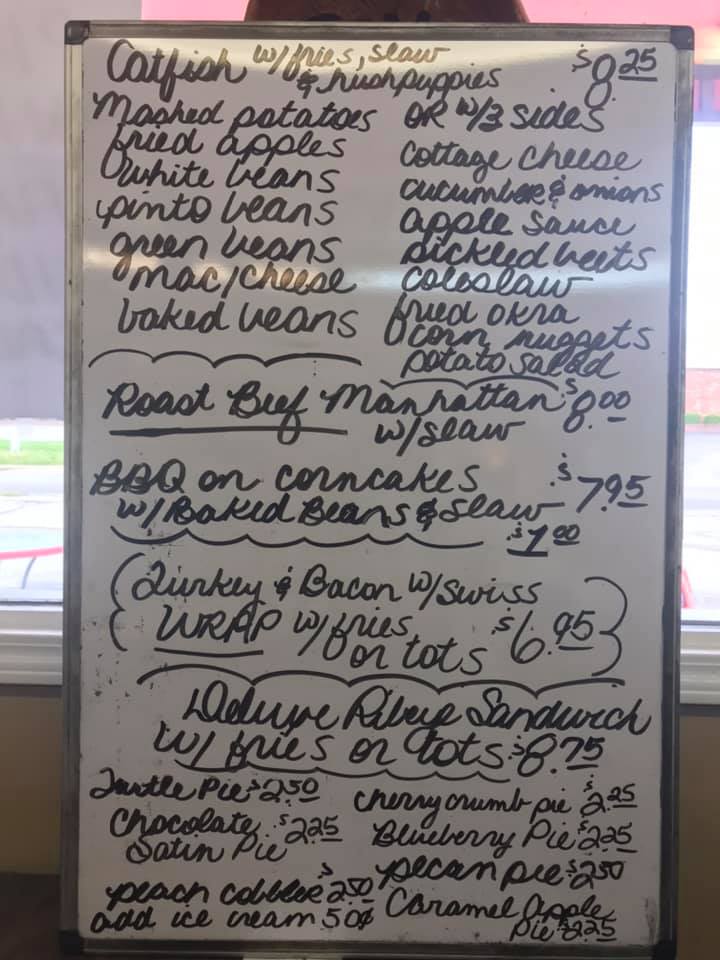 Catfish w/fries, slaw & hushpuppies $8.25
Mashed potatoes
fried apples
white beans
pinto beans
green beans
mac/cheese
baked beans
OR w/3 sides
cottage cheese
cucumber & onions
apple sauce
pickled beets
coleslaw
fried okra
corn nuggets
potato salad
Roast Beef Manhattan $8.00
w/slaw
BBQ on corncakes $7.95
w/Baked Beans & slaw
$1.00
Turkey & Bacon w/swiss
WRAP w/fries $6.95
or tots
Deluxe Ribeye Sandwich
w/fries or tots $8.75
Turtle Pie $2.50
Chocolate $2.25
Satin Pie
peach cobbler $2.50
add ice cream 50¢
cherry crumb pie $2.25
Blueberry Pie $2.25
pecan pie $2.50
Caramel Apple
Pie $2.25